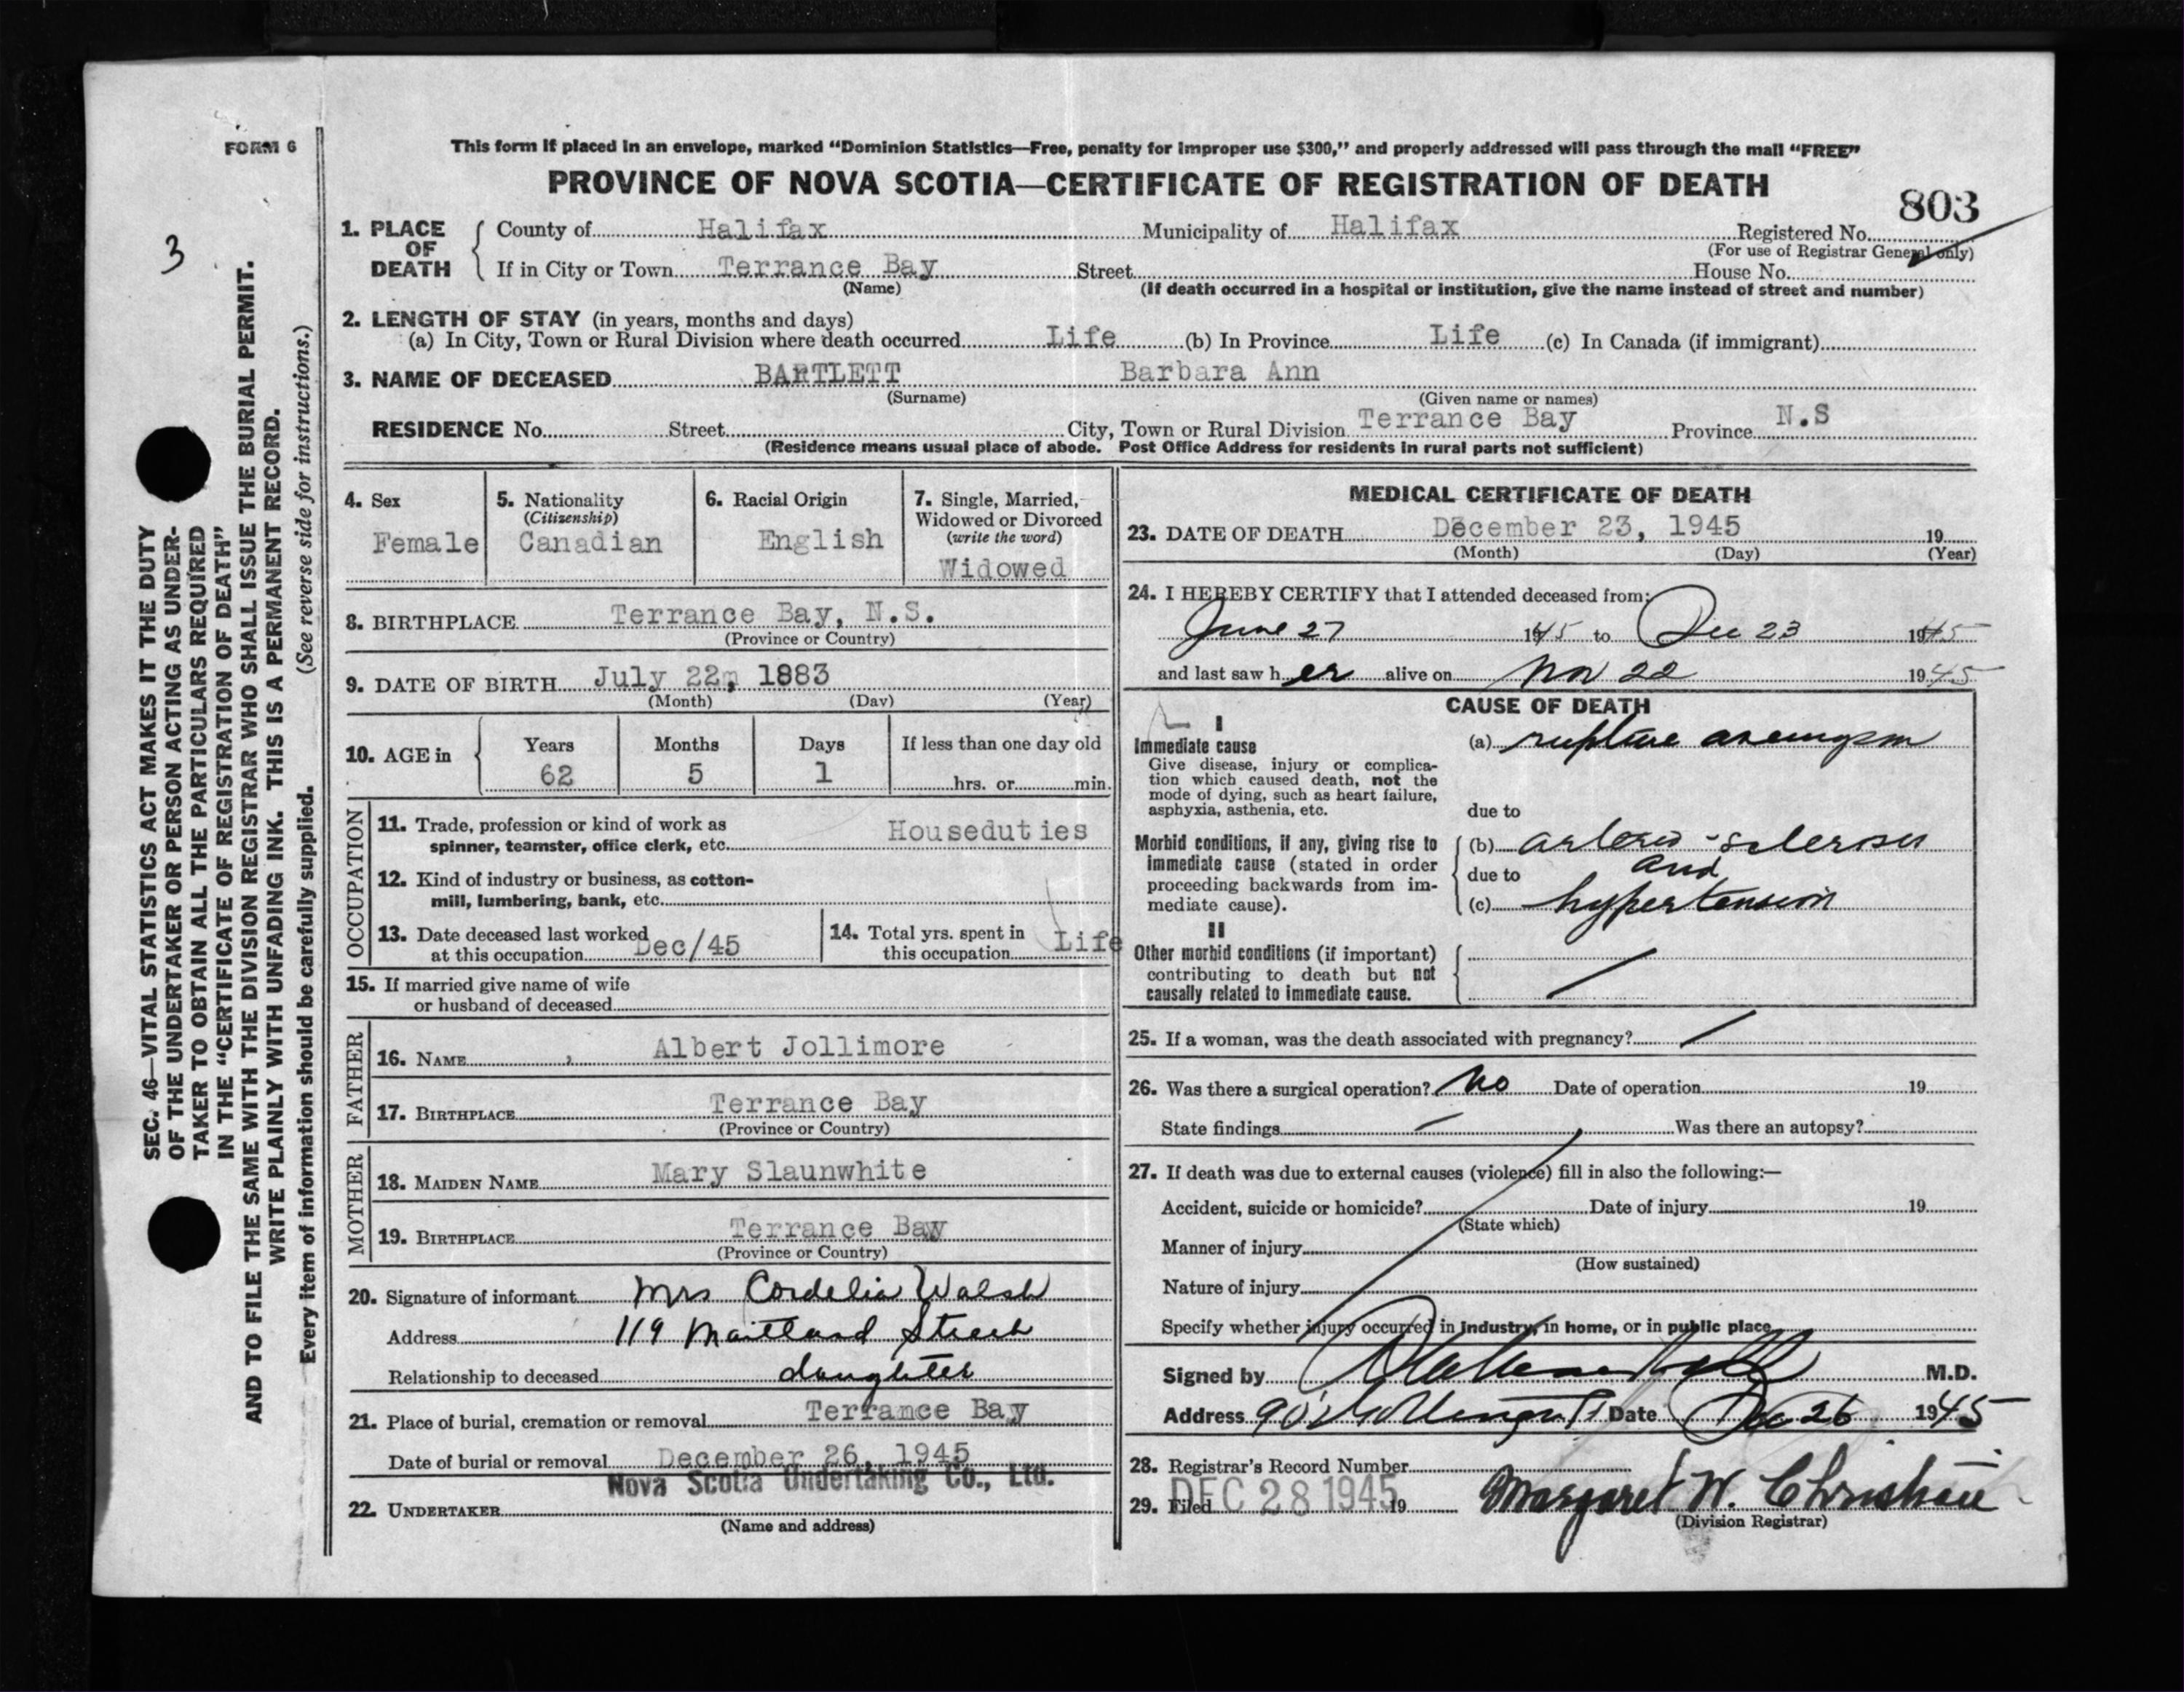 FORM 6
3
SEC. 46—VITAL STATISTICS ACT MAKES IT THE DUTY
OF THE UNDERTAKER OR PERSON ACTING AS UNDER-
TAKER TO OBTAIN ALL THE PARTICULARS REQUIRED
IN THE "CERTIFICATE OF REGISTRATION OF DEATH"
AND TO FILE THE SAME WITH THE DIVISION REGISTRAR WHO SHALL ISSUE THE BURIAL PERMIT.
WRITE PLAINLY WITH UNFADING INK. THIS IS A PERMANENT RECORD.
Every item of information should be carefully supplied. (See reverse side for instructions.)
This form if placed in an envelope, marked "Dominion Statistics—Free, penalty for improper use $300," and properly addressed will pass through the mail "FREE"
PROVINCE OF NOVA SCOTIA—CERTIFICATE OF REGISTRATION OF DEATH
803
1. PLACE OF DEATH
County of Halifax Municipality of Halifax Registered No.
(For use of Registrar General only)
If in City or Town Terrance Bay Street House No.
(Name) (If death occurred in a hospital or institution, give the name instead of street and number)
2. LENGTH OF STAY (in years, months and days)
(a) In City, Town or Rural Division where death occurred Life (b) In Province Life (c) In Canada (if immigrant)
3. NAME OF DECEASED BARTLETT Barbara Ann
(Surname) (Given name or names)
RESIDENCE No. Street City, Town or Rural Division Terrance Bay Province N.S
(Residence means usual place of abode. Post Office Address for residents in rural parts not sufficient)
4. Sex
Female
5. Nationality
(Citizenship)
Canadian
6. Racial Origin
English
7. Single, Married,
Widowed or Divorced
(write the word)
Widowed
8. BIRTHPLACE Terrance Bay, N.S.
(Province or Country)
9. DATE OF BIRTH July 22m, 1883
(Month) (Day) (Year)
10. AGE in
Years Months Days If less than one day old
62 5 1 hrs. or min.
OCCUPATION
11. Trade, profession or kind of work as
spinner, teamster, office clerk, etc. Houseduties
12. Kind of industry or business, as cotton-
mill, lumbering, bank, etc.
13. Date deceased last worked
at this occupation Dec/45
14. Total yrs. spent in
this occupation Life
15. If married give name of wife
or husband of deceased
FATHER
16. NAME Albert Jollimore
17. BIRTHPLACE Terrance Bay
(Province or Country)
MOTHER
18. MAIDEN NAME Mary Slaunwhite
19. BIRTHPLACE Terrance Bay
(Province or Country)
20. Signature of informant Mrs Cordelia Walsh
Address 119 Maitland Street
Relationship to deceased daughter
21. Place of burial, cremation or removal Terrance Bay
Date of burial or removal December 26, 1945
Nova Scotia Undertaking Co., Ltd.
22. UNDERTAKER
(Name and address)
MEDICAL CERTIFICATE OF DEATH
23. DATE OF DEATH December 23, 1945 19
(Month) (Day) (Year)
24. I HEREBY CERTIFY that I attended deceased from:
June 27 1945 to Dec 23 1945
and last saw her alive on Nov 22 1945
CAUSE OF DEATH
I
Immediate cause
Give disease, injury or complica-
tion which caused death, not the
mode of dying, such as heart failure,
asphyxia, asthenia, etc.
(a) rupture aneurysm
due to
Morbid conditions, if any, giving rise to
immediate cause (stated in order
proceeding backwards from im-
mediate cause).
(b) arterio-sclerosis
due to and
(c) hypertension
II
Other morbid conditions (if important)
contributing to death but not
causally related to immediate cause.
25. If a woman, was the death associated with pregnancy?
26. Was there a surgical operation? No Date of operation 19
State findings Was there an autopsy?
27. If death was due to external causes (violence) fill in also the following:—
Accident, suicide or homicide? Date of injury 19
(State which)
Manner of injury
(How sustained)
Nature of injury
Specify whether injury occurred in industry, in home, or in public place
Signed by M.D.
Address Date Dec 26 1945
28. Registrar's Record Number
29. Filed DEC 28 1945 19 Margaret W. Christie
(Division Registrar)